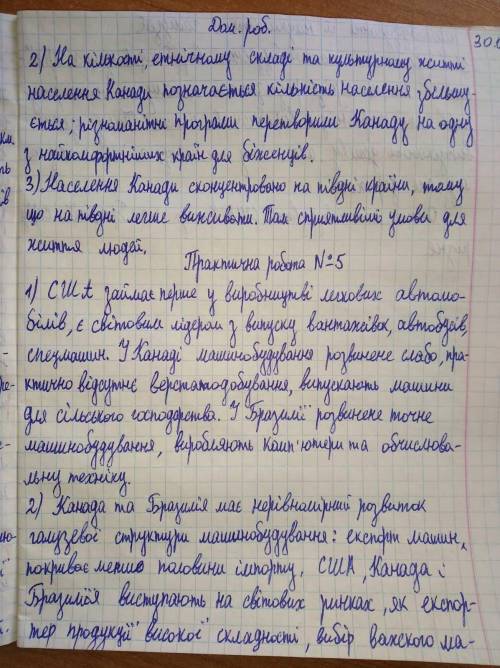 Дом. роб.
30.0
2) На кількості, етнічному складі та культурному житті
населення Канади позначається кількість населення збельшу-
ється; різноманітні програми перетворили Канаду на одну
з найкомфортніших країн для біженців.
3) Населення Канади сконцентровано на півдні країни, тому
що на півдні легше виживати. Там сприятливіші умови для
життя людей.
Практична робота №5
1) США займає перше у виробництві легкових автомо-
білів, є світовим лідером з випуску вантажівок, автобусів,
спецмашин. У Канаді машинобудування розвинене слабо, пра-
ктично відсутнє верстатодобування, випускають машини
для сільського господарства. У Бразилії розвинене точне
машинобудування, виробляють комп'ютери та обчислюва-
льну техніку.
2) Канада та Бразилія має нерівномірний розвиток
галузевої структури машинобудування: експорт машин,
покриває менше половини імпорту. США, Канада і
Бразилія виступають на світових ринках, як експор-
тер продукції високої складності, вибір важкого ма-